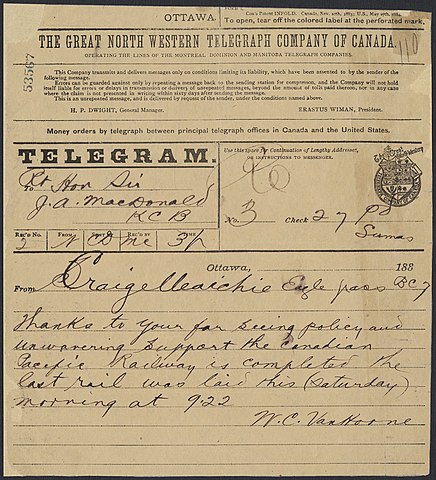 OTTAWA.
Con's Patent INFOLD. Canada, Nov. 20th, 1883; U.S., May 27th, 1884.
To open, tear off the colored label at the perforated mark.
THE GREAT NORTH WESTERN TELEGRAPH COMPANY OF CANADA.
OPERATING THE LINES OF THE MONTREAL, DOMINION AND MANITOBA TELEGRAPH COMPANIES.
This Company transmits and delivers messages only on conditions limiting its liability, which have been assented to by the sender of the
following message.
Errors can be guarded against only by repeating a message back to the sending station for comparison, and the Company will not hold
itself liable for errors or delays in transmission or delivery of unrepeated messages, beyond the amount of tolls paid thereon, nor in any
case where the claim is not presented in writing within sixty days after sending the message.
This is an unrepeated message, and is delivered by request of the sender, under the conditions named above.
H. P. DWIGHT, General Manager.
ERASTUS WIMAN, President.
53567
110
Money orders by telegraph between principal telegraph offices in Canada and the United States.
TELEGRAM.
Use this space for Continuation of Lengthy Addresses,
OR INSTRUCTIONS TO MESSENGER.
To Rt Hon Sir
J. A. MacDonald
KCB
No. 3 Check 27 pd
Sumas
REC'D No. FROM SENT BY REC'D BY TIME
2 N CD Mc 3p
Ottawa, 188
From Craigelleaichie Eagle pass BC 7
Thanks to your far seeing policy and
unwavering support the Canadian
Pacific Railway is completed the
last rail was laid this (Saturday)
morning at 9.22
W. C. Van Horne